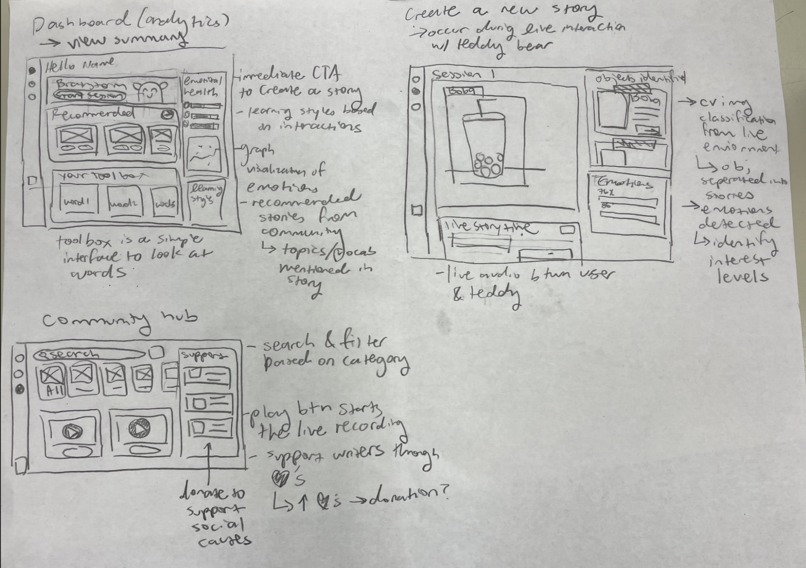 Dashboard (analytics)
→ view summary
Hello Name
Brainstorm
start session
Recommended
your toolbox
word1
word2
emotional
health
learning
style
toolbox is a simple
interface to look at
words
immediate CTA
to create a story
- learning styles based
on interactions
graph
visalization of
emotions
- recommended
stories from
community
↳ topics/vocab
mentioned in
story
Create a new story
→ occur during live interaction
w/ teddy bear
Session 1
Boba
live storytime
objects identified
Boba
Emotions
- live audio btwn user
& teddy
→ cv img
classification
from live
enviornment
↳ obj
seperated into
stories
→ emotions
detected
↳ identify
interest
levels
Community hub
search
All
support
- search & filter
based on category
- play btn starts
the live recording
- support writers through
♡'s
↳ ↑ ♡'s → donation?
donate to
support
social
causes